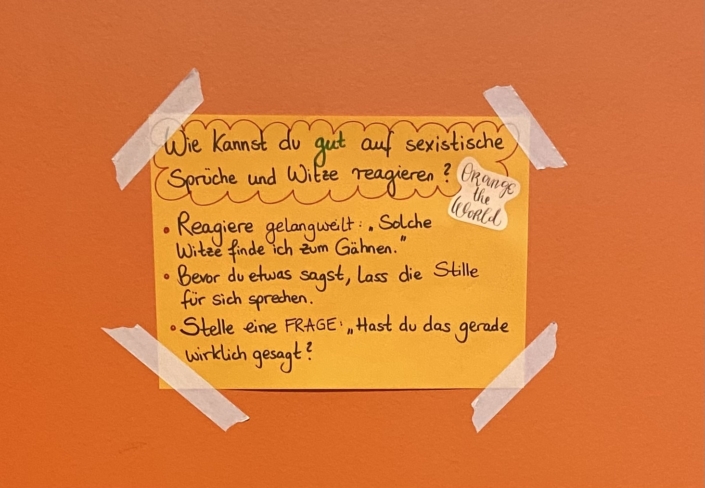 Wie kannst du gut auf sexistische
Sprüche und Witze reagieren?
Orange
the
World
• Reagiere gelangweilt: „Solche
Witze finde ich zum Gähnen."
• Bevor du etwas sagst, lass die Stille
für sich sprechen.
• Stelle eine FRAGE: „Hast du das gerade
wirklich gesagt?